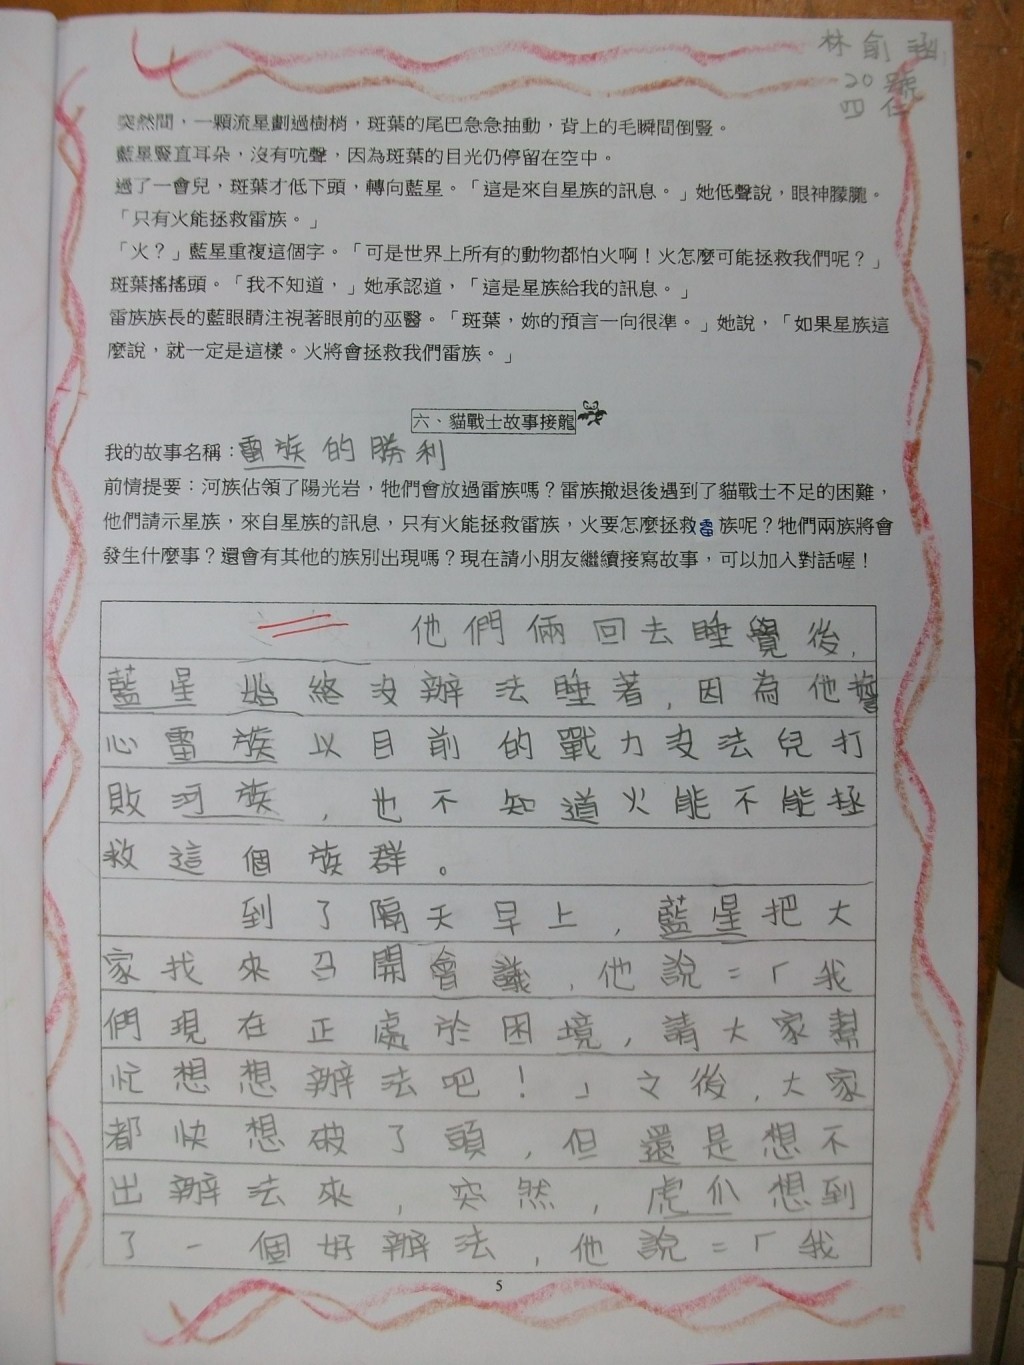 林俞涵
20號
四仁
突然間，一顆流星劃過樹梢，斑葉的尾巴急急抽動，背上的毛瞬間倒豎。
藍星豎直耳朵，沒有吭聲，因為斑葉的目光仍停留在空中。
過了一會兒，斑葉才低下頭，轉向藍星。「這是來自星族的訊息。」她低聲說，眼神朦朧。
「只有火能拯救雷族。」
「火？」藍星重複這個字。「可是世界上所有的動物都怕火啊！火怎麼可能拯救我們呢？」
斑葉搖搖頭。「我不知道，」她承認道，「這是星族給我的訊息。」
雷族族長的藍眼睛注視著眼前的巫醫。「斑葉，妳的預言一向很準。」她說，「如果星族這
麼說，就一定是這樣。火將會拯救我們雷族。」
六、貓戰士故事接龍
我的故事名稱：雷族的勝利
前情提要：河族佔領了陽光岩，牠們會放過雷族嗎？雷族撤退後遇到了貓戰士不足的困難，
他們請示星族，來自星族的訊息，只有火能拯救雷族，火要怎麼拯救雷族呢？牠們兩族將會
發生什麼事？還會有其他的族別出現嗎？現在請小朋友繼續接寫故事，可以加入對話喔！
他們倆回去睡覺後，
藍星始終沒辦法睡著，因為他擔
心雷族以目前的戰力沒法兒打
敗河族，也不知道火能不能拯
救這個族群。
到了隔天早上，藍星把大
家找來召開會議，他說：「我
們現在正處於困境，請大家幫
忙想想辦法吧！」之後，大家
都快想破了頭，但還是想不
出辦法來，突然，虎爪想到
了一個好辦法，他說：「我
5